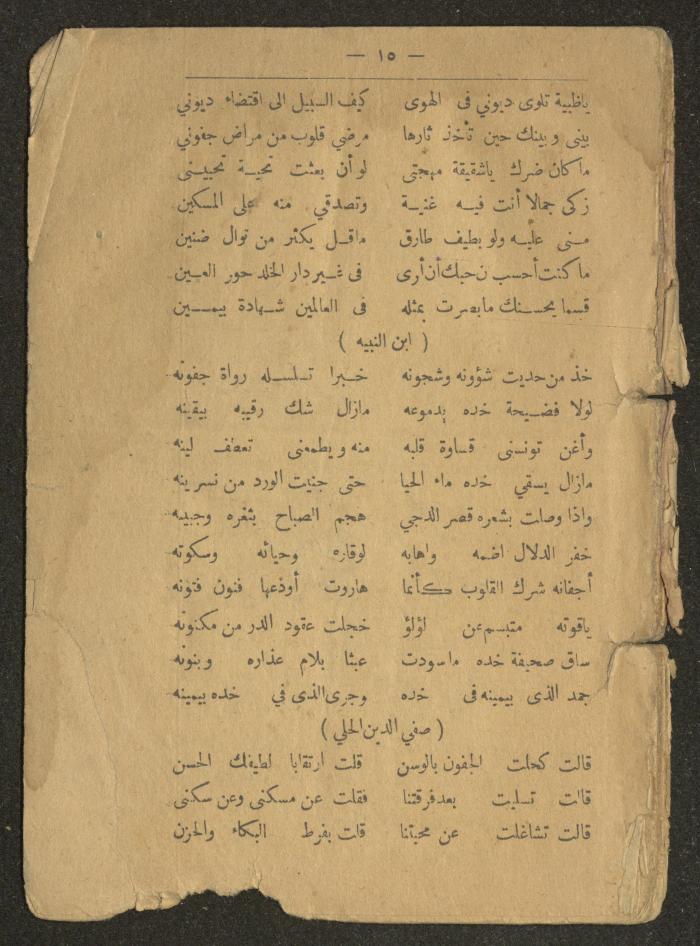 — ١٥ —
ياظبية تلوى ديوني فى الهوى كيف السبيل الى اقتضاء ديوني
بينى وبينك حين تأخذ ثارها مرضي قلوب من مراض جفوني
ماكان ضرك ياشقيقة مهجتى لو أن بعثت تحية تحييني
زكى جمالا أنت فيه غنية وتصدقي منه على المسكين
منى عليه ولو بطيف طارق ماقل يكثر من نوال ضنين
ماكنت أحسب ن حبك أن أرى فى غير دار الخلد حور العين
قسما بحسنك مابصرت بمثله فى العالمين شهادة بيمين
( ابن النبيه )
خذ من حديث شؤونه وشجونه خبرا تسلسله رواة جفونه
لولا فضيحة خده بدموعه مازال شك رقيبه بيقينه
وأغن تونسنى قساوة قلبه منه ويطمعنى تعطف لينه
مازال يسقي خده ماء الحيا حتى جنيت الورد من نسرينه
واذا وصلت بشعره قصر الدجي هجم الصباح بثغره وجبينه
خفر الدلال اضمه واهابه لوقاره وحيائه وسكوته
أجفانه شرك القلوب كأنما هاروت أودعها فنون فتونه
ياقوته متبسم عن لؤلؤ خجلت عقود الدر من مكنونه
ساق صحيفة خده ماسودت عبثا بلام عذاره وبنونه
جمد الذى بيمينه فى خده وجرى الذى في خده بيمينه
( صفي الدين الحلي )
قالت كحلت الجفون بالوسن قلت ارتقابا لطيفك الحسن
قالت تسليت بعد فرقتنا فقلت عن مسكنى وعن سكنى
قالت تشاغلت عن محبتنا قلت بفرط البكاء والحزن